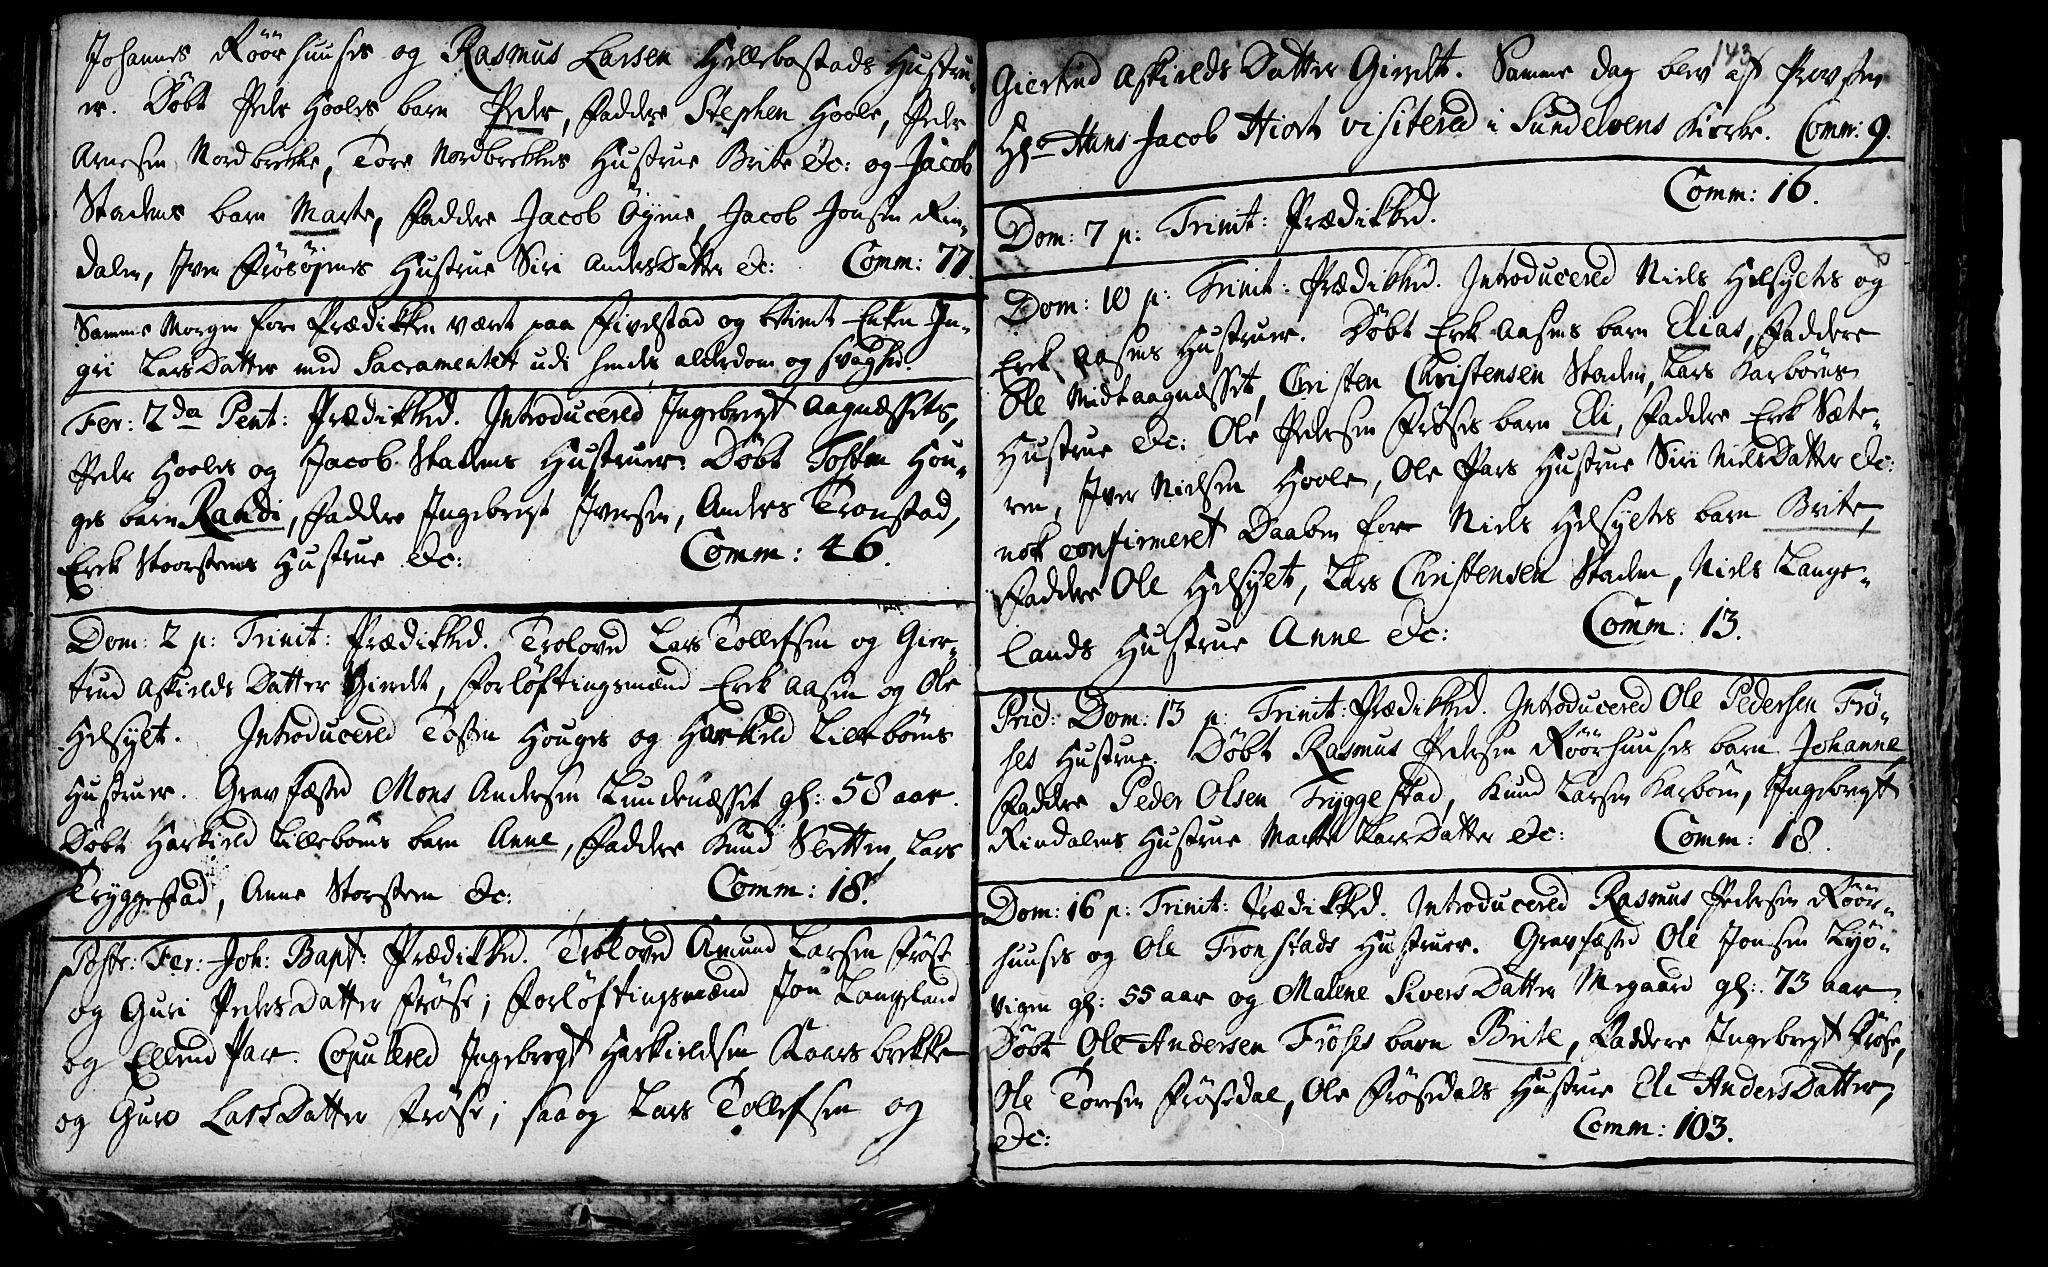 Johannes Röörhuuses og Rasmus Larsen Hellebostads Hustru-
er. Döbt Peder Hooles barn Peder, Faddere Stephen Hoole, Peder
Arnesen Nordbrekke, Tore Nordbrekkes Hustrue Brite &c: og Jacob
Stadems barn Marte, Faddere Jacob Öyene, Jacob Jonsen Rin-
dalen, Iver Hustrue Siri AndersDatter &c: Comm: 77.
Samme Morgen fore Prædikken været paa Fivelstad og betient Enken In-
gri LarsDatter med Sacramentet udi hendes alderdom og svaghed.
Fer: 2da Pent: Prædikked. Introducered Ingebregt Aagnæssets,
Peder Hooles og Jacob Stadems Hustruer. Döbt Tosten Hou-
ges barn Randi, Faddere Ingebregt Iversen, Anders Tronstad,
Erek Stoorsteens Hustrue &c: Comm: 46.
Dom: 2 p: Trinit: Prædikked. Troloved Lars Tollefsen og Gier-
trud Askields Datter Gierdt, Forlöftingsmænd Erek Aasen og Ole
Helsylt. Introducered Tosten Houges og Harkield Lilleböens
Hustruer. Gravfæsted Mons Andersen Lundenæsset gl: 58 aar.
Döbt Harkield Lilleböens barn Anne, Faddere Knud Sletten, Lars
Tryggestad, Anne Storsteen &c: Comm: 18.
Postr: Fer: Joh: Bapt: Prædikked. Trolovd Amund Larsen Fröse
og Guri PedersDatter Fröse; Forlöftingsmænd Jon Langeland
og Ellend Par. Copulered Ingebregt Harkieldsen Kaarsbrekke
og Guro LarsDatter Fröse; saa og Lars Tollefsen og
143
Giertrud Askields Datter Giерdt. Samme dag blev af Provsten
Hr Hans Jacob Hiort visitered i Sundelvens Kirke. Comm: 9.
Dom: 7 p: Trinit: Prædikked. Comm: 16.
Dom: 10 p: Trinit: Prædikked. Introducered Niels Helsyltes og
Erek Aasens Hustruer. Döbt Erek Aasens barn Elias, Faddere
Ole Midtaagnæsset, Christen Christensen Stadem, Lars Karböens
Hustrue &c: Ole Pedersen Fröses barn Eli, Faddere Erek Sæte-
ren, Iver Nielsen Hoole, Ole Pars Hustrue Siri NielsDatter &c:
nok confirmeret Daaben fore Niels Helsyltes barn Brite,
Faddere Ole Helsylt, Lars Christensen Stadem, Niels Lange-
lands Hustrue Anne &c: Comm: 13.
Prid: Dom: 13 p: Trinit: Prædikked. Introducered Ole Pedersen Frö-
ses Hustrue. Döbt Rasmus Pedersen Röörhuuses barn Johanne
Faddere Peder Olsen Tryggestad, Knud Larsen Karböen, Ingebregt
Rindalens Hustrue Marte LarsDatter &c: Comm: 18.
Dom: 16 p: Trinit: Prædikked. Introducered Rasmus Pedersen Röör-
huuses og Ole Tronstads Hustruer. Gravfæsted Ole Jonsen Lyö-
vigen gl: 55 aar og Malene SiversDatter Megaard gl: 73 aar.
Döbt Ole Andersen Fröses barn Brite, Faddere Ingebregt Fröse,
Ole Toresen Frösedal, Ole Frösedals Hustrue Eli AndersDatter,
&c: Comm: 103.